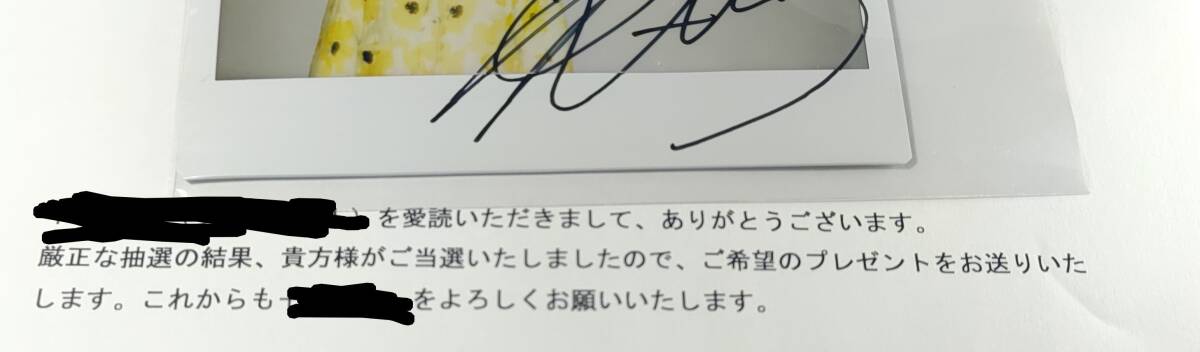 ）を愛読いただきまして、ありがとうございます。
厳正な抽選の結果、貴方様がご当選いたしましたので、ご希望のプレゼントをお送りいた
します。これからも をよろしくお願いいたします。